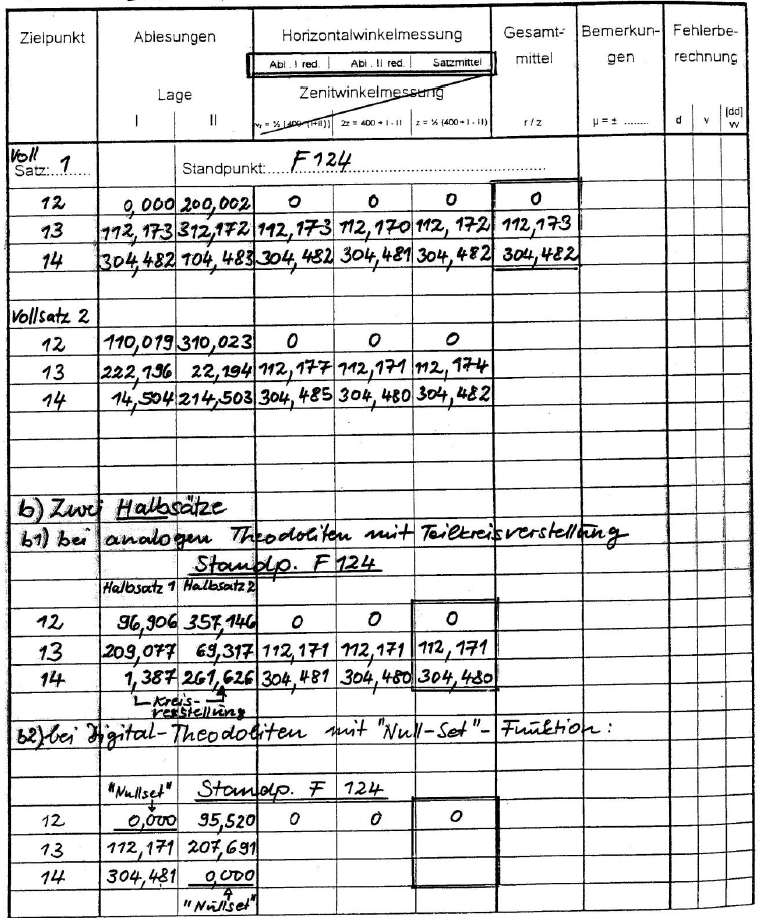 Zielpunkt Ablesungen Horizontalwinkelmessung Gesamt- Bemerkun- Fehlerbe-
Abl. I red. Abl. II red. Satzmittel mittel gen rechnung
Lage Zenitwinkelmessung
I II 2z = 400 + I - II z = ½ (400 + I - II) r / z µ = ± ........ d v [dd] vv
Voll
Satz: 1 Standpunkt: F 124
12 0,000 200,002 0 0 0 0
13 112,173 312,172 112,173 112,170 112,172 112,173
14 304,482 104,483 304,482 304,481 304,482 304,482
Vollsatz 2
12 110,019 310,023 0 0 0
13 222,196 22,194 112,177 112,171 112,174
14 14,504 214,503 304,485 304,480 304,482
b) Zwei Halbsätze
b1) bei analogen Theodoliten mit Teilkreisverstellung
Standp. F 124
Halbsatz 1 Halbsatz 2
12 96,906 357,146 0 0 0
13 209,077 69,317 112,171 112,171 112,171
14 1,387 261,626 304,481 304,480 304,480
Kreis-
verstellung
b2) bei Digital-Theodoliten mit "Null-Set"- Funktion:
"Nullset" Standp. F 124
12 0,000 95,520 0 0 0
13 112,171 207,691
14 304,481 0,000
"Nullset"